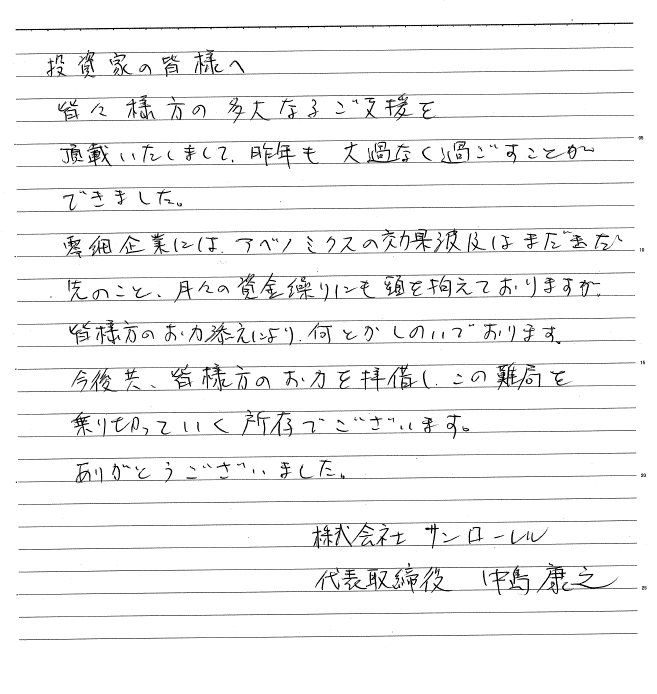 投資家の皆様へ
皆々様方の多大なるご支援を
頂載いたしまして、昨年も 大過なく過ごすことが
できました。
零細企業には、アベノミクスの効果波及はまだまだ
先のこと、月々の資金繰りにも頭を抱えておりますが、
皆様方のお力添えにより、何とかしのいでおります。
今後共、皆様方のお力を拝借し、この難局を
乗り切っていく所存でございます。
ありがとうございました。
株式会社 サンローレル
代表取締役 中島康之
05
10
15
20
25